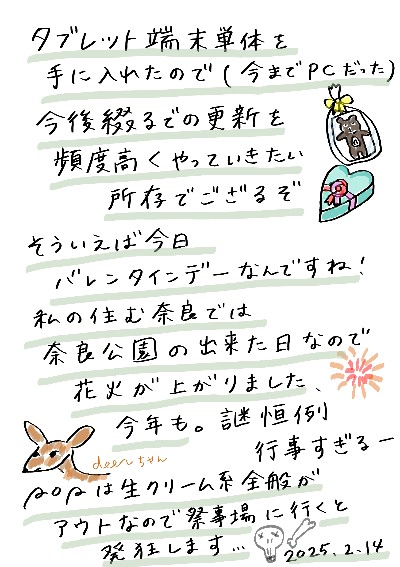 タブレット端末単体を
手に入れたので(今までPCだった)
今後綴るでの更新を
頻度高くやっていきたい
所存でござるぞ
そういえば今日
バレンタインデーなんですね!
私の住む奈良では
奈良公園の出来た日なので
花火が上がりました、
今年も。謎恒例
行事すぎるー
deerちゃん
popは生クリーム系全般が
アウトなので祭事場に行くと
発狂します…
2025.2.14